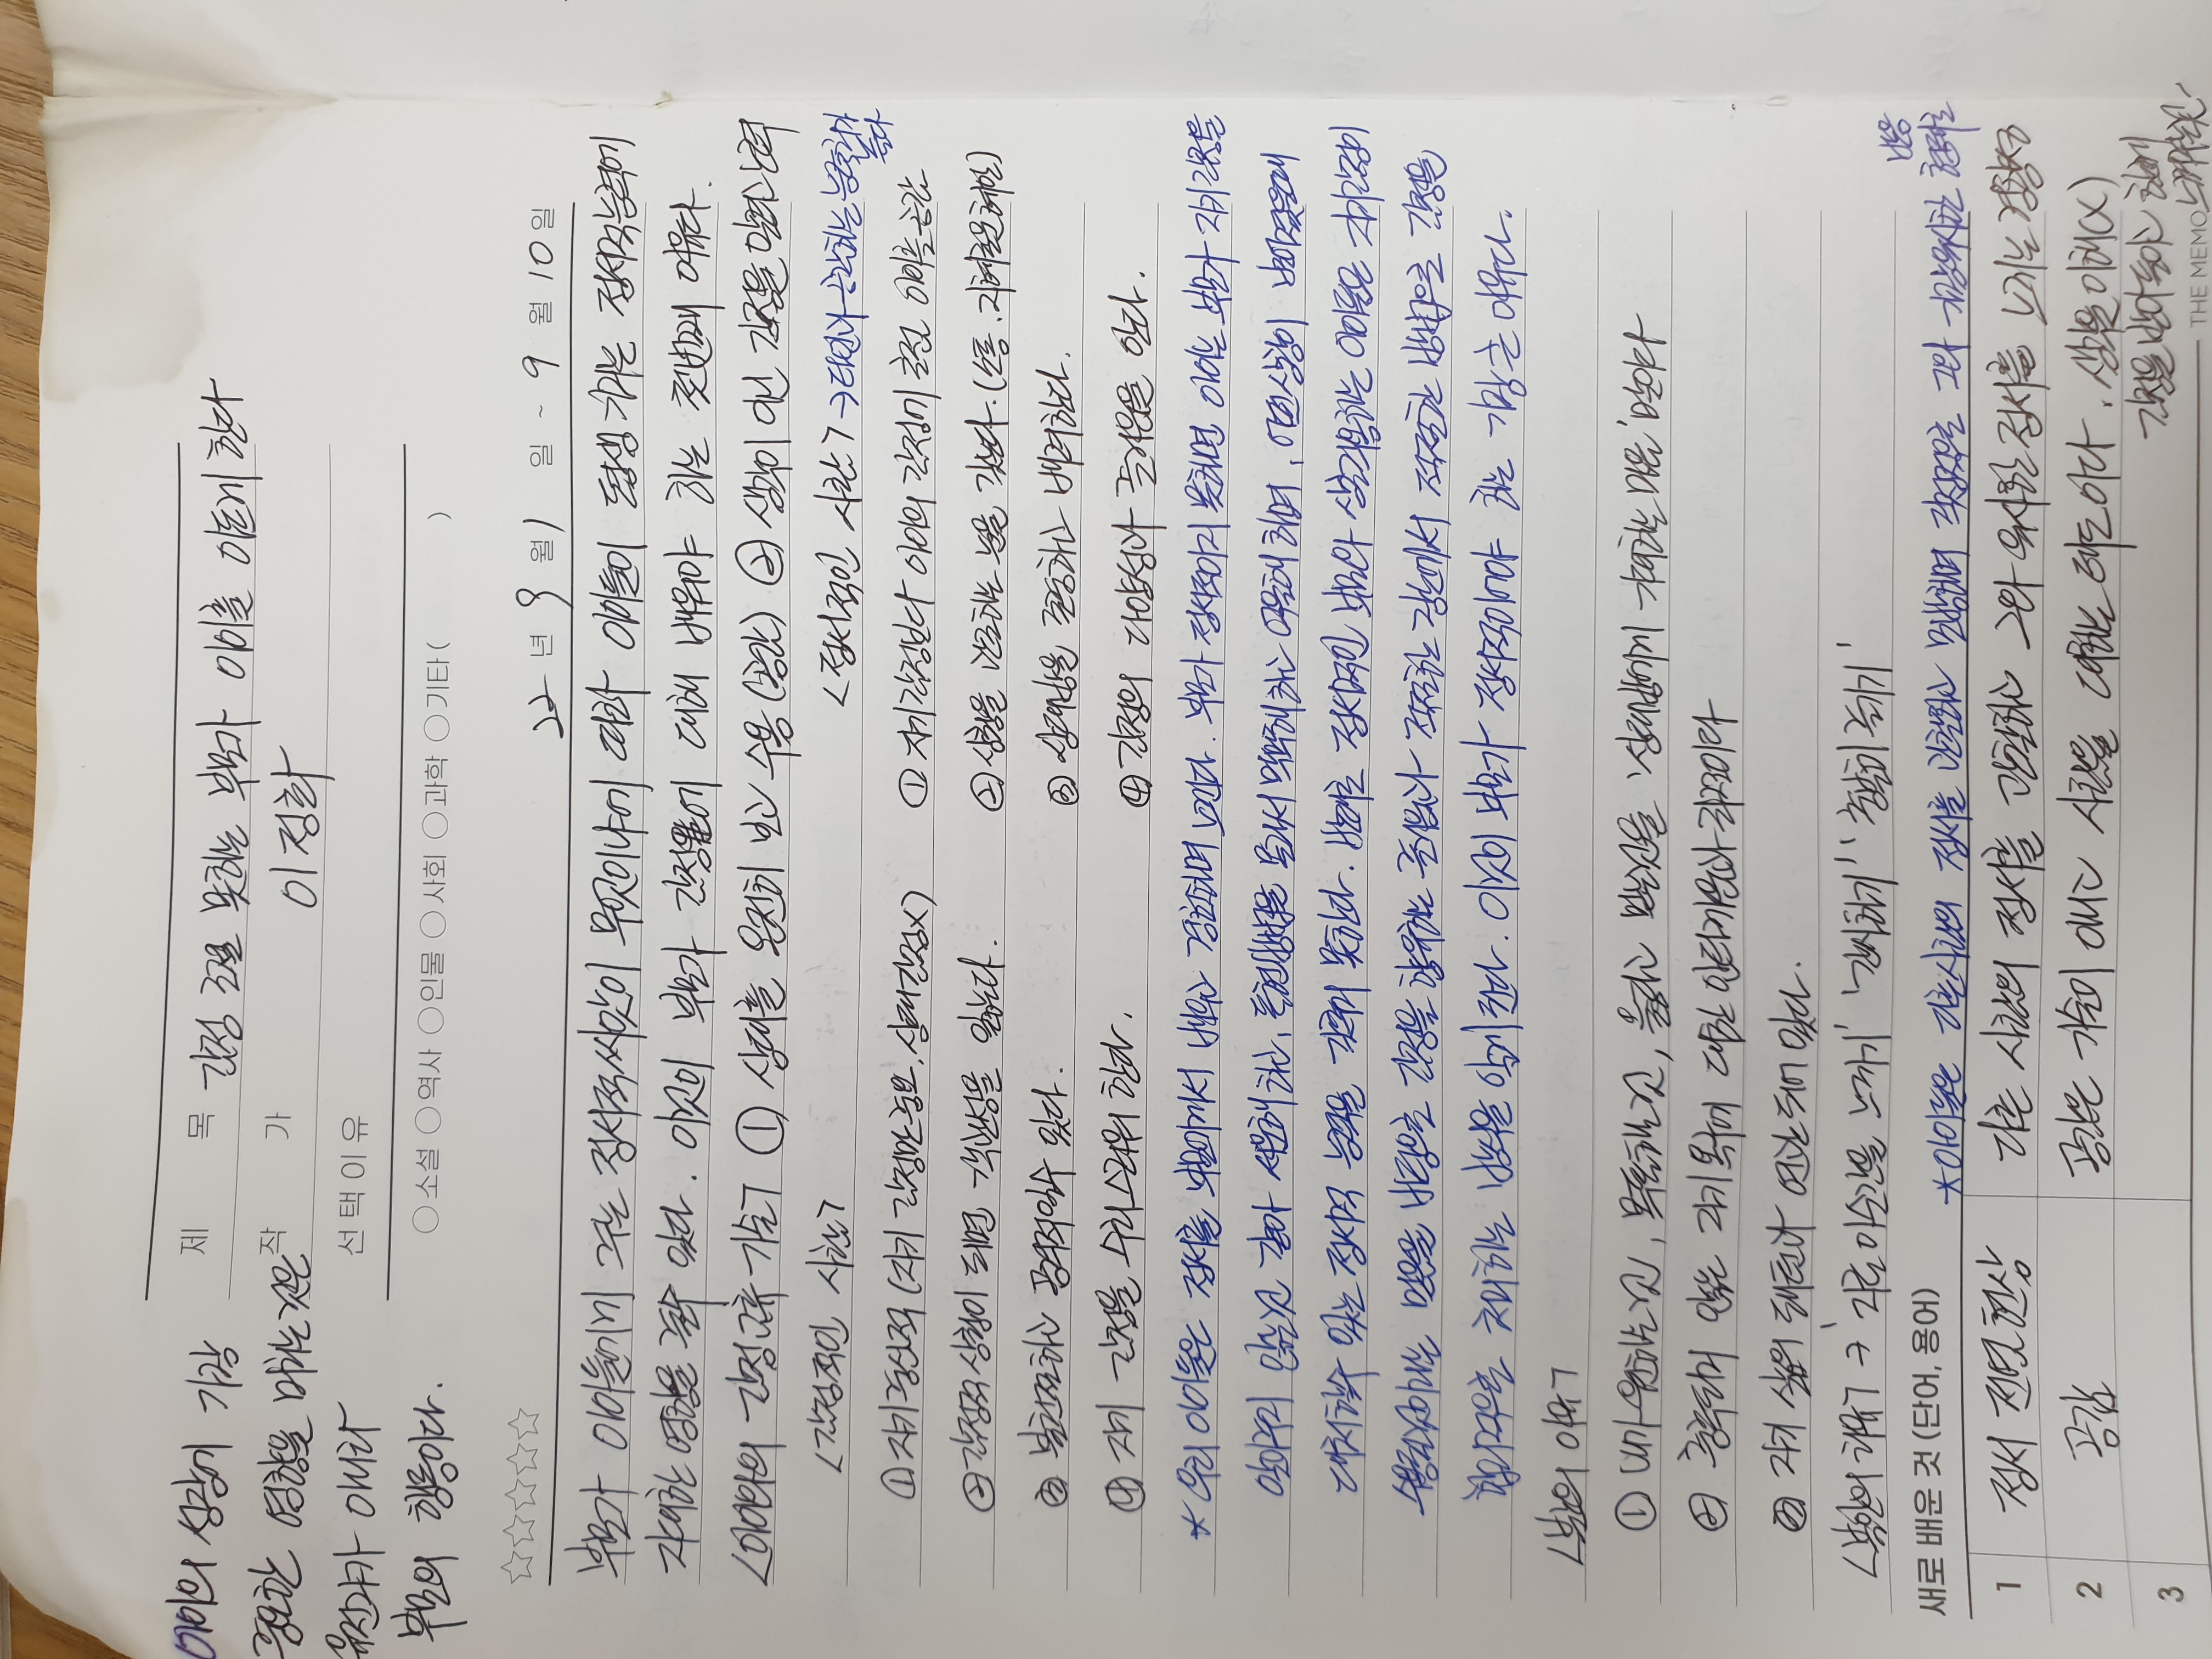 아이의 성장에 가장
중요한 영향을 미치는것은
유전자가 아니라
부모의 행동이다.
제 목 감정 조절 못하는 부모가 아이를 아프게 한다
작 가 이정화
선택이유
○소설 ○역사 ○인물 ○사회 ○과학 ○기타 ( )
☆☆☆☆☆
22 년 9 월 1 일 ~ 9 월 10 일
부모가 아이들에게 주는 정서적씨앗이 무엇이냐에 따라 아이들이 평생 가지는 정서적능력에
지대한 영향을 줄수 있다. 이것이 부모가 감정에 대해 배워야 하는 첫번째 이유다.
<아이와의 감정교류 기술> ① 상대를 온전히 보고 수용 (공감) ② 생각이 아닌 감정을 읽으려는 노력
<감정적인 사람> <정서적인 사람> → 타인과 공감하는 능력이
높다
① 자기중심적 (자기 감정만 중요, 상대감정X) ① 자기감정보다 아이의 감정에 초점 아이를 공감
② 감정적 상황이 되면 객관성을 잃는다. ② 상황을 관조하는 눈을 갖는다. (소통, 지혜로운 혜안)
③ 불친절하고 공격적일수 있다. ③ 상대방을 존중하고 배려한다.
④ 자기 감정을 수치스러워 한다. ④ 감정의 다양성과 즐거움을 안다.
* 우리 아이들은 정서를 부모에게서 배우고 경험하며 느낀다. 부모가 정서적이지 못하면 아이는 부모가 자기감정을
알아주지 않는것 같아 서운해 하고, 표현방법을 몰라서 막막해하고 억울해 하며, 어떤상황이 벌어졌을때
대처할수 있는 정서적 능력을 갖추지 못한다. 반대로 정서적인 부모와 상호작용하는 아이들은 자기감정이
수용될것이라는 믿음을 바탕으로 감정을 향유하는 즐거움과 적절한 장소에서 적절한 방법으로 감정을
합리적으로 처리하는 방식을 알게 된다. 이것이 부모가 정서적이어야 하는 가장 큰 이유다.
<불안의 이유>
① 내가 원하는것, 목표하는것, 옳다고 믿는것을 '상대방에게 기대하는 마음' 때문이다
② 충족되지 않는 자기 욕구에 대한 안타까움과 좌절이다
③ 자기 삶의 패턴과 연관 되어 있다.
<불안의 치유> → '지금 이순간을 느끼기' '감사하기' '충분히 즐기기'
새로 배운 것 (단어, 용어)
*아이들은 다른사람의 정서를 관찰하고 모방하며 감정적으로 그와 가장유사한 형태로
반응
1 정서 전염 현상 다른 사람의 정서를 관찰하고 그와 유사한 정서를 느끼는 경향성
2 공감 공감은 기술이 아니고 사람을 대하는 태도이다. 생각을 이해(X)
감정을 받아들이고 함께
느껴주는것.
3
THE MEMO